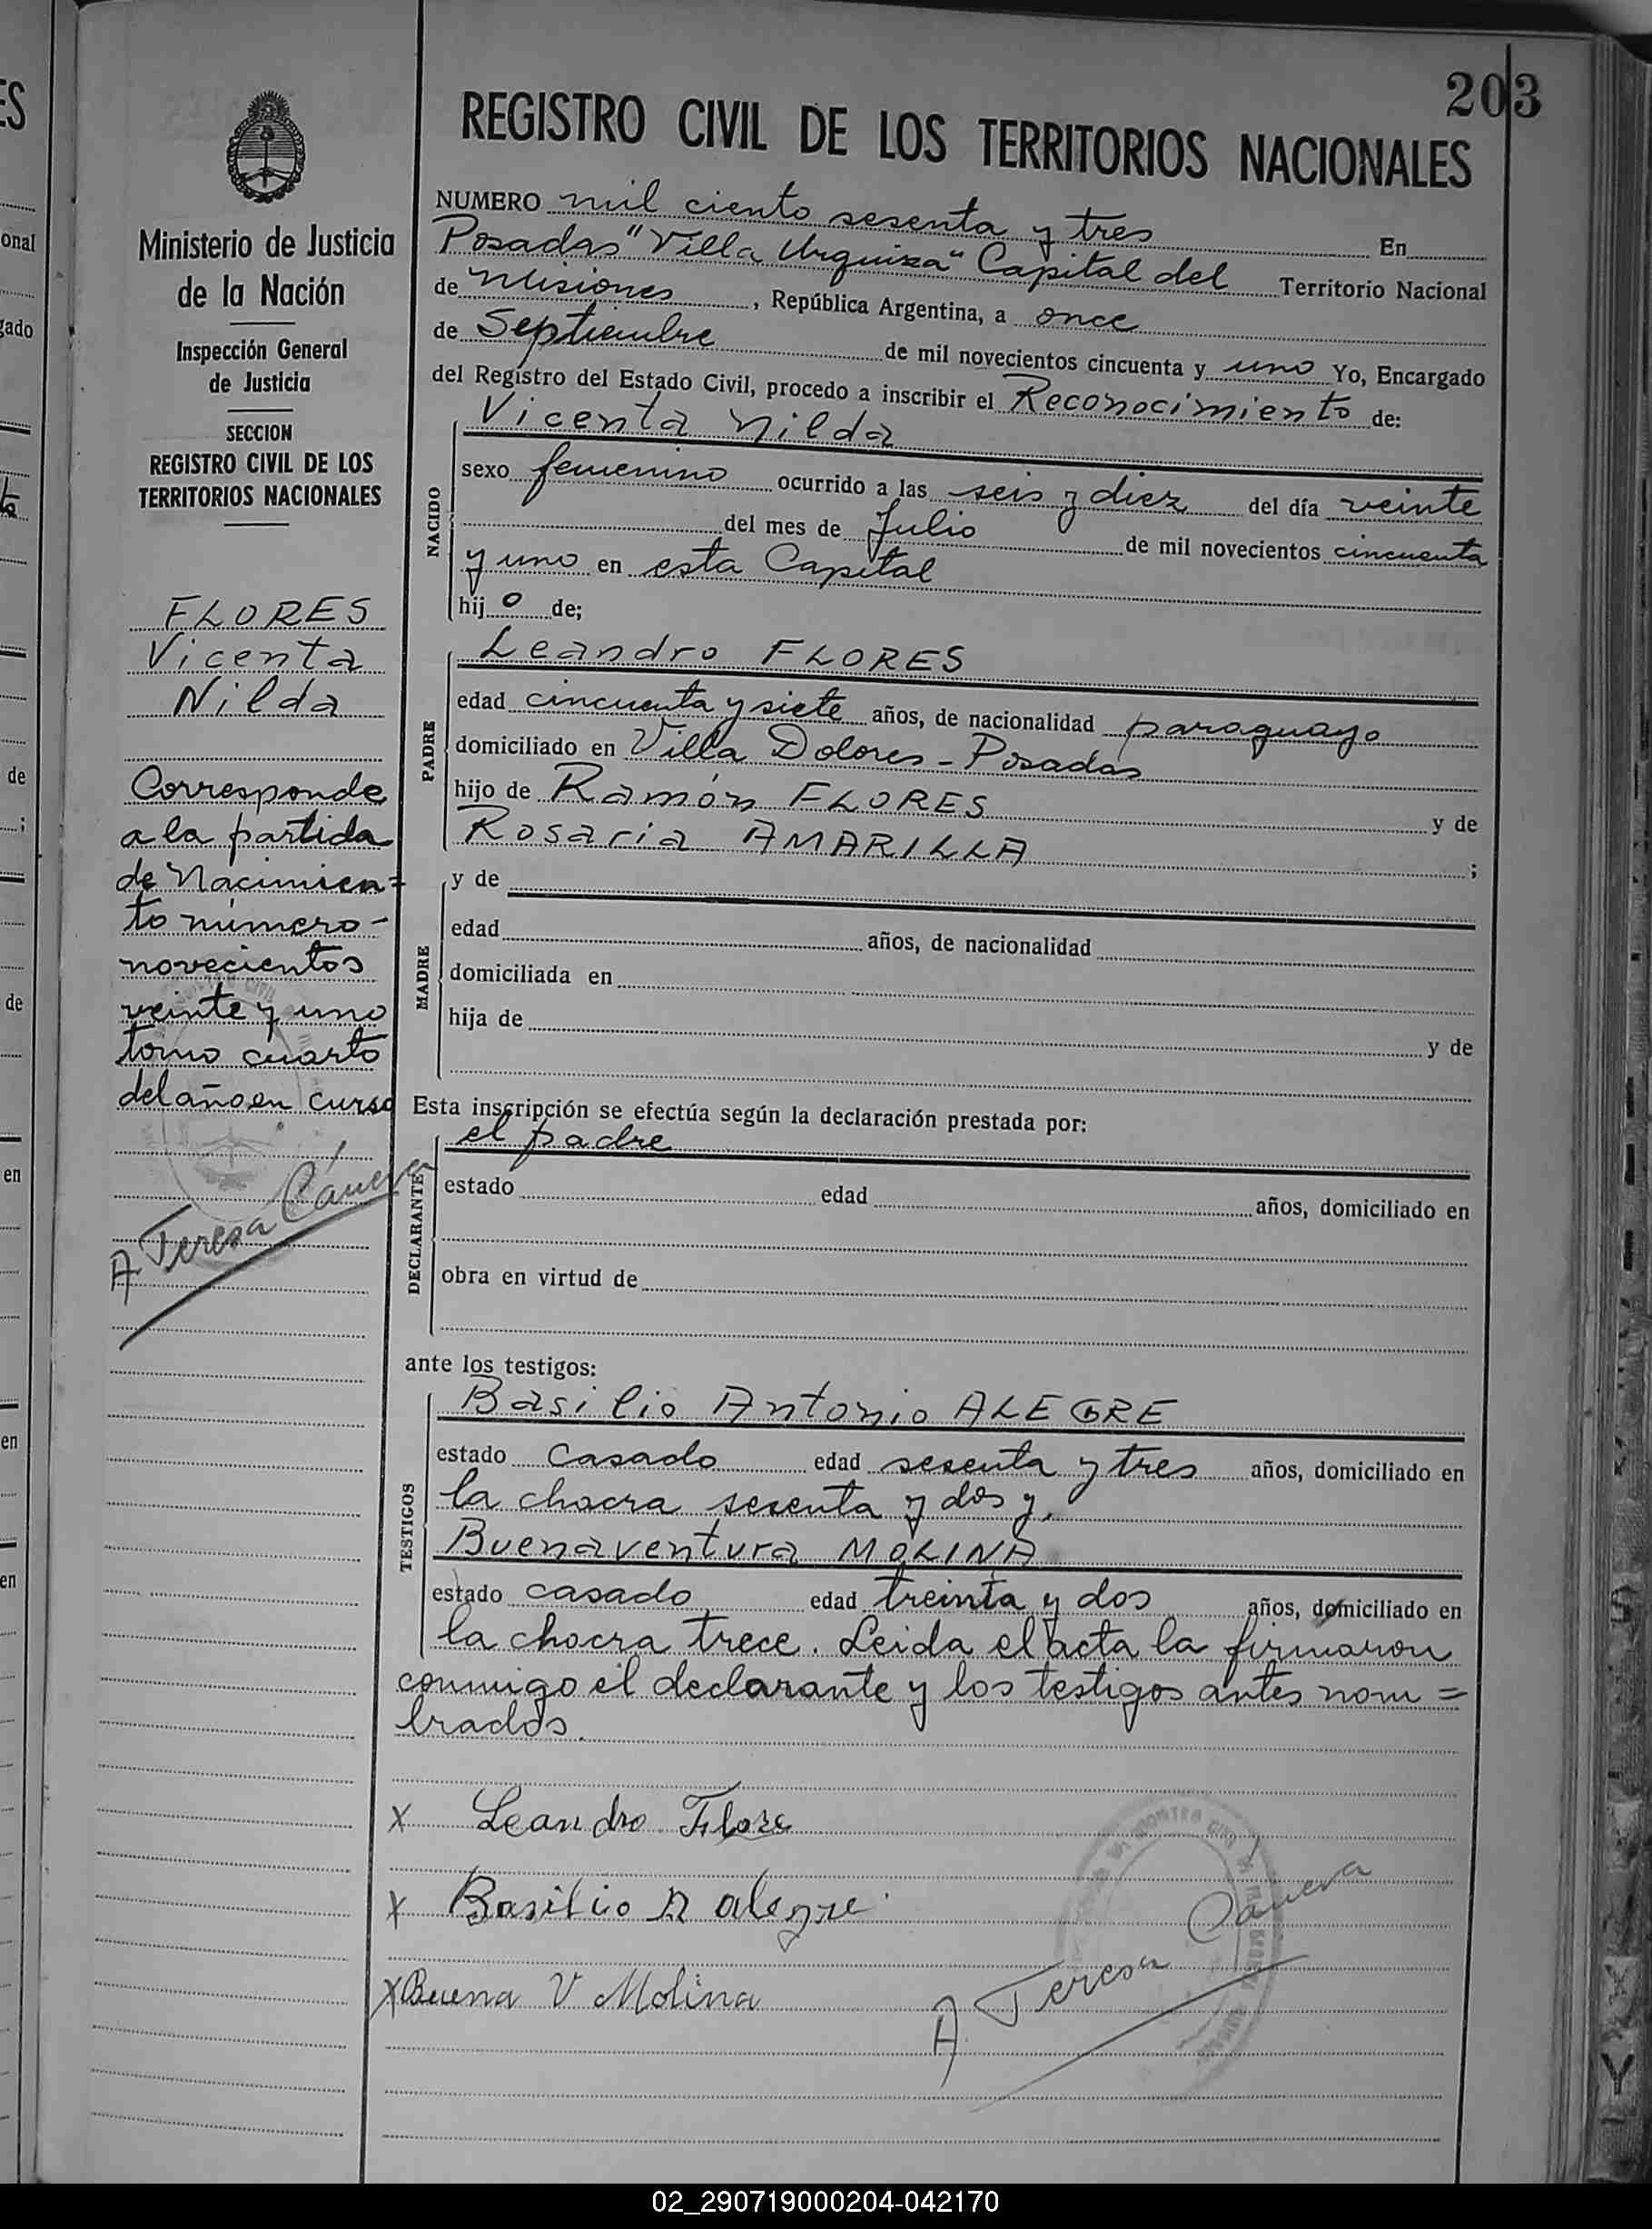 203
REGISTRO CIVIL DE LOS TERRITORIOS NACIONALES
Ministerio de Justicia
de la Nación
Inspección General
de Justicia
SECCION
REGISTRO CIVIL DE LOS
TERRITORIOS NACIONALES
FLORES
Vicenta
Nilda
Corresponde
a la partida
de Nacimien=
to número-
novecientos
veinte y uno
tomo cuarto
del año en curso
A Teresa Cáneva
NUMERO mil ciento sesenta y tres En
Posadas "Villa Urquiza" Capital del Territorio Nacional
de Misiones, República Argentina, a once
de Septiembre de mil novecientos cincuenta y uno Yo, Encargado
del Registro del Estado Civil, procedo a inscribir el Reconocimiento de:
NACIDO
Vicenta Nilda
sexo femenino ocurrido a las seis y diez del día veinte
del mes de Julio de mil novecientos cincuenta
y uno en esta Capital
hijo de;
PADRE
Leandro FLORES
edad cincuenta y siete años, de nacionalidad paraguayo
domiciliado en Villa Dolores - Posadas
hijo de Ramón FLORES y de
Rosaria AMARILLA ;
MADRE
y de
edad años, de nacionalidad
domiciliada en
hija de y de
Esta inscripción se efectúa según la declaración prestada por:
DECLARANTE
el padre
estado edad años, domiciliado en
obra en virtud de
ante los testigos:
TESTIGOS
Basilio Antonio ALEGRE
estado casado edad sesenta y tres años, domiciliado en
la chacra sesenta y dos y,
Buenaventura MOLINA
estado casado edad treinta y dos años, domiciliado en
la chacra trece. Leida el acta la firmaron
conmigo el declarante y los testigos antes nom=
brados.
X Leandro Flore
X Basilio A alegre
X Buena V Molina
A Teresa Cáneva
02_290719000204-042170